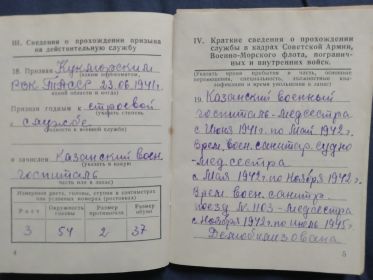 III. Сведения о прохождении призыва
на действительную службу
18. Призван Кукморским
(каким военкоматом,
РВК ТАССР 23.06.1941г.
какой области и когда)
Признан годным к строевой
(указать степень
службе
годности к военной службе)
и зачислен Казанский воен.
(указать в какую
госпиталь
часть или в запас)
Измерения роста, головы, ступни в сантиметрах
или условных номерах (ростовка)
Рост
Окружность
головы
Размер
противогаза
Размер
обуви
3
54
2
37
4
IV. Краткие сведения о прохождении
службы в кадрах Советской Армии,
Военно-Морского флота, погранич-
ных и внутренних войск.
(Указать время прибытия в часть, основное
перемещения, специальность,
кацию и время увольнения в запас)
Казанский военный
госпиталь-медсестра
с Июня 1941г. по Май 1942г.
Врем. воен. санитар. судно
-медсестра
с Мая 1942г. по Ноября 1942г.
Врем. воен. санитр.
поезд №1103-Медсестра
с Ноября 1942г. по Июль 1945г.
Демобилизована
5